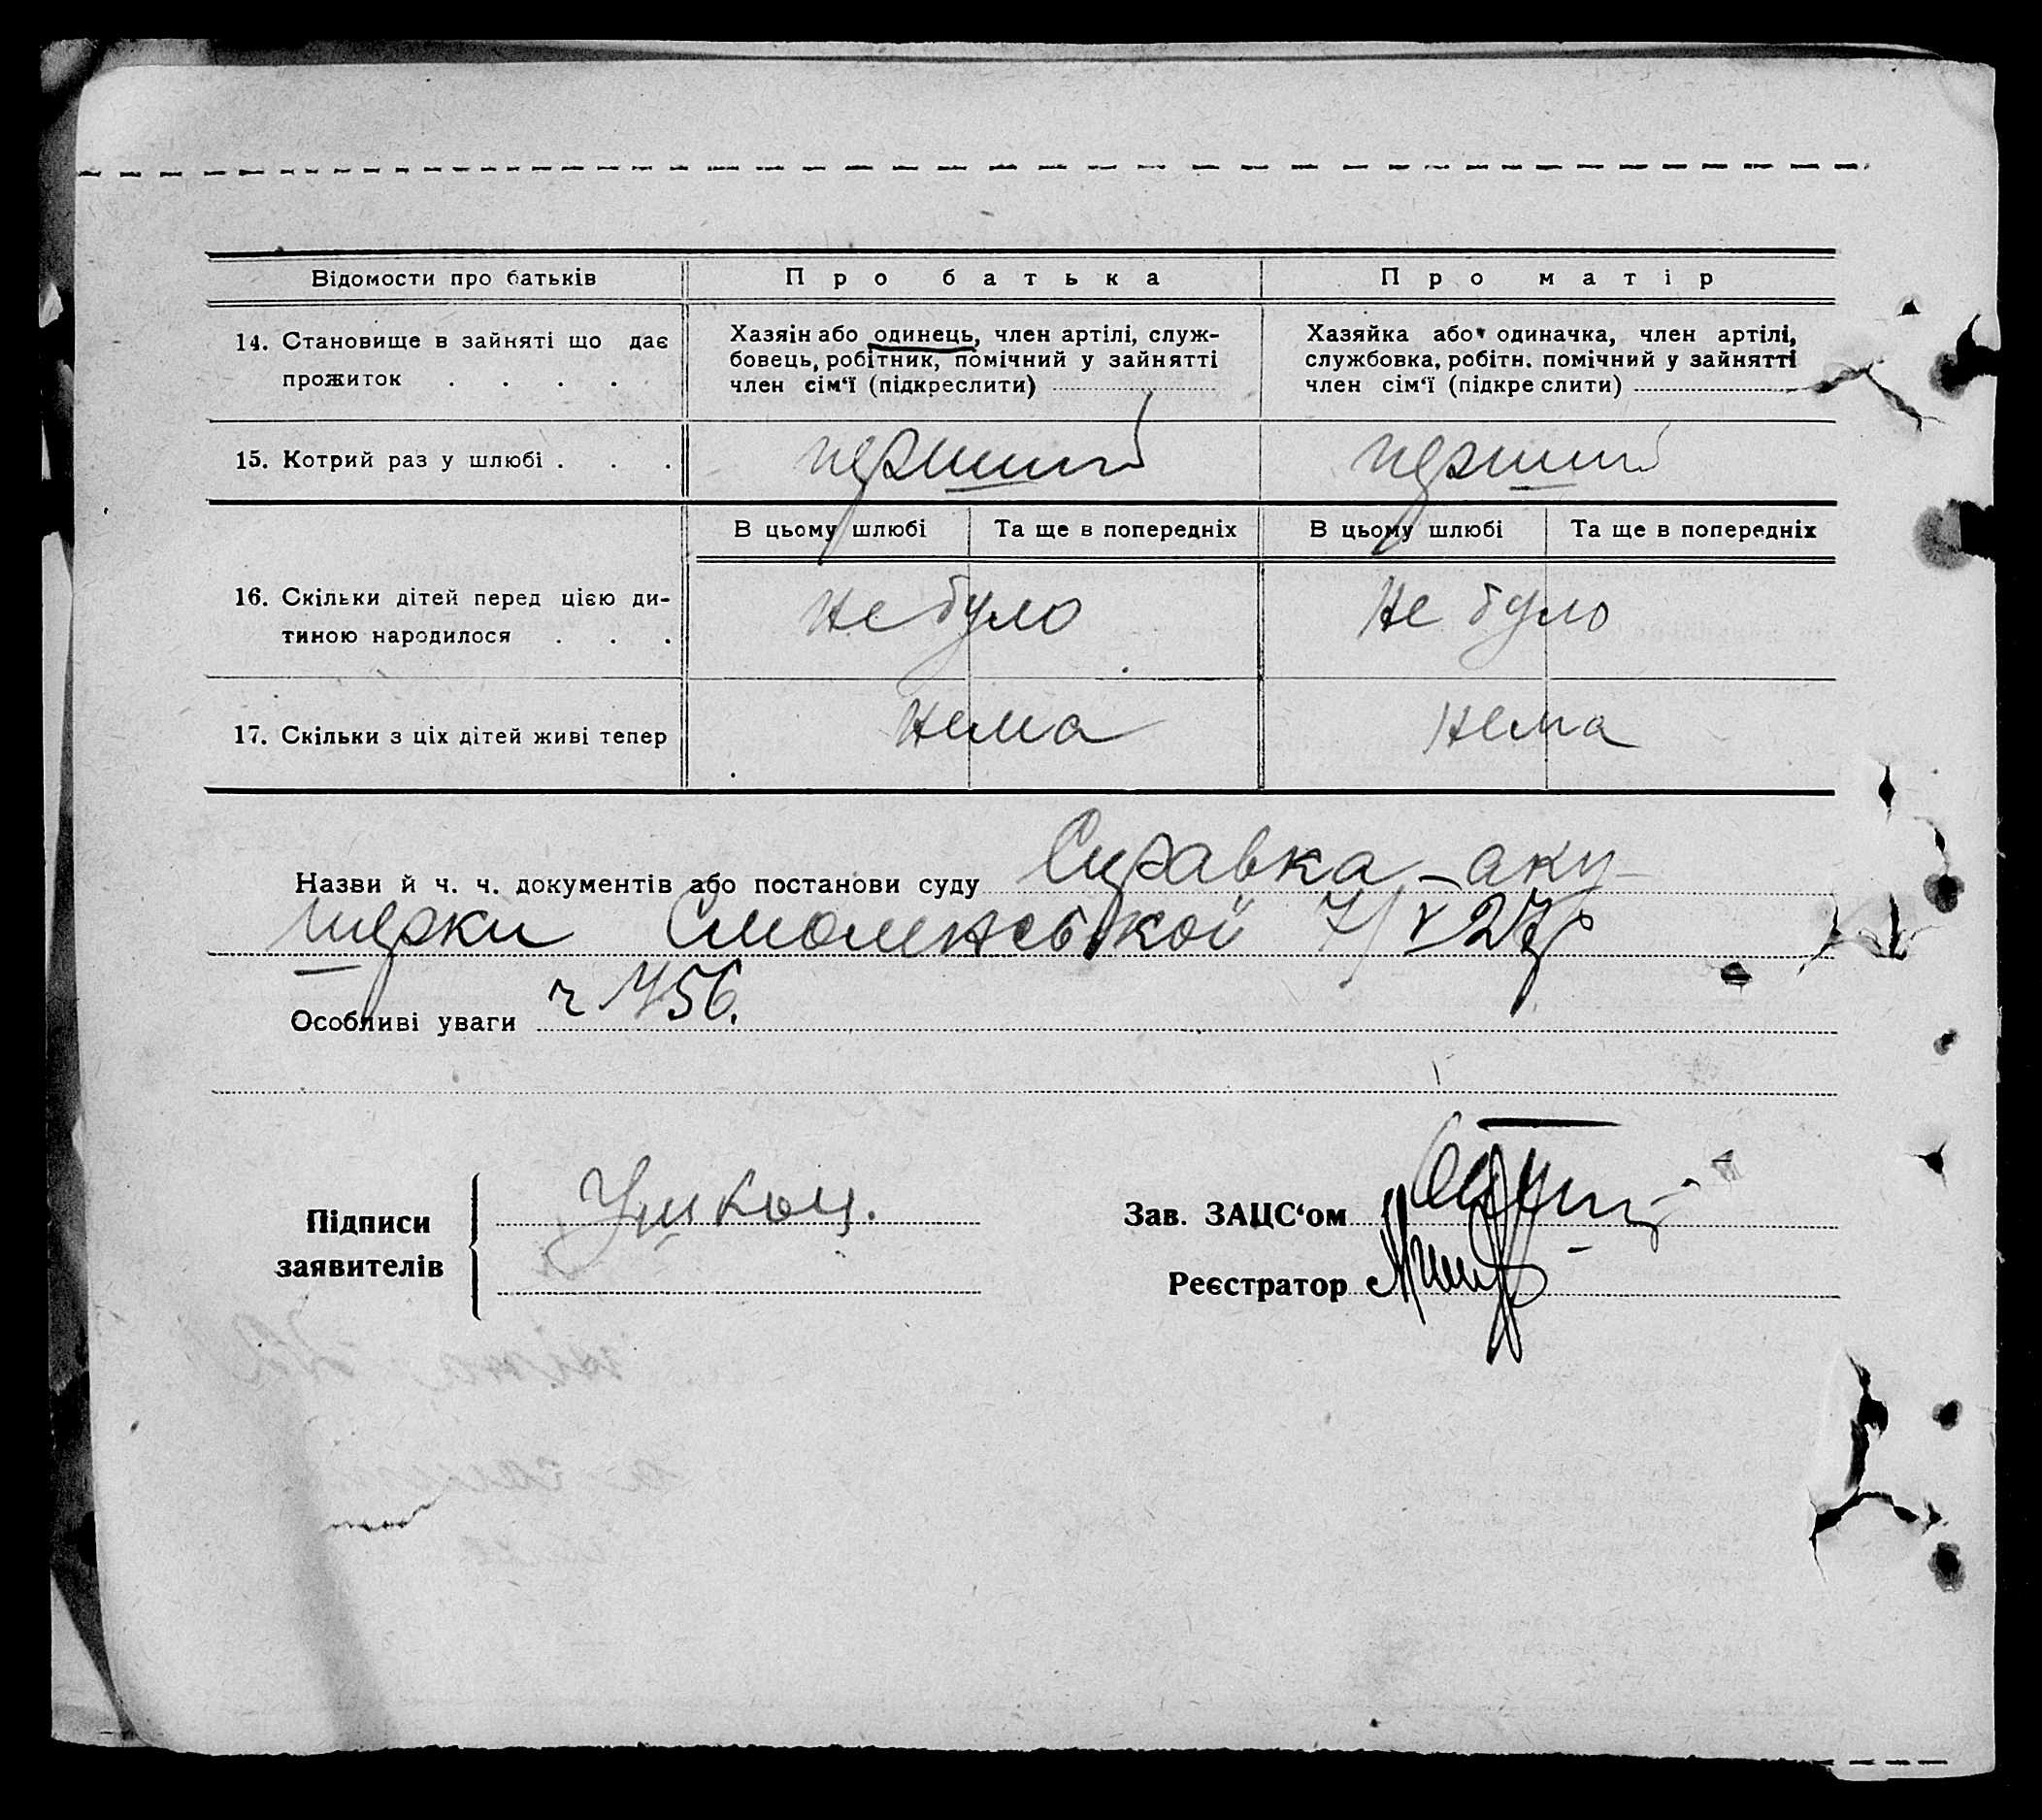 Відомости про батьків
Про батька
Про матір
14. Становище в зайняті що дає
прожиток . . . .
Хазяін або одинець, член артілі, служ-
бовець, робітник, помічний у зайнятті
член сім‘ї (підкреслити)
Хазяйка або одиначка, член артілі,
службовка, робітн. помічний у зайнятті
член сім‘ї (підкреслити)
15. Котрий раз у шлюбі . . .
перший
перший
В цьому шлюбі
Та ще в попередніх
В цьому шлюбі
Та ще в попередніх
16. Скільки дітей перед цією ди-
тиною народилося . . .
не було
не було
17. Скільки з ціх дітей живі тепер
нема
нема
Назви й ч. ч. документів або постанови суду Справка-аку-
шерки Смоленської 7/V 27р
Особливі уваги ч 1456.
Підписи
заявителів
Зав. ЗАЦС‘ом
Реєстратор